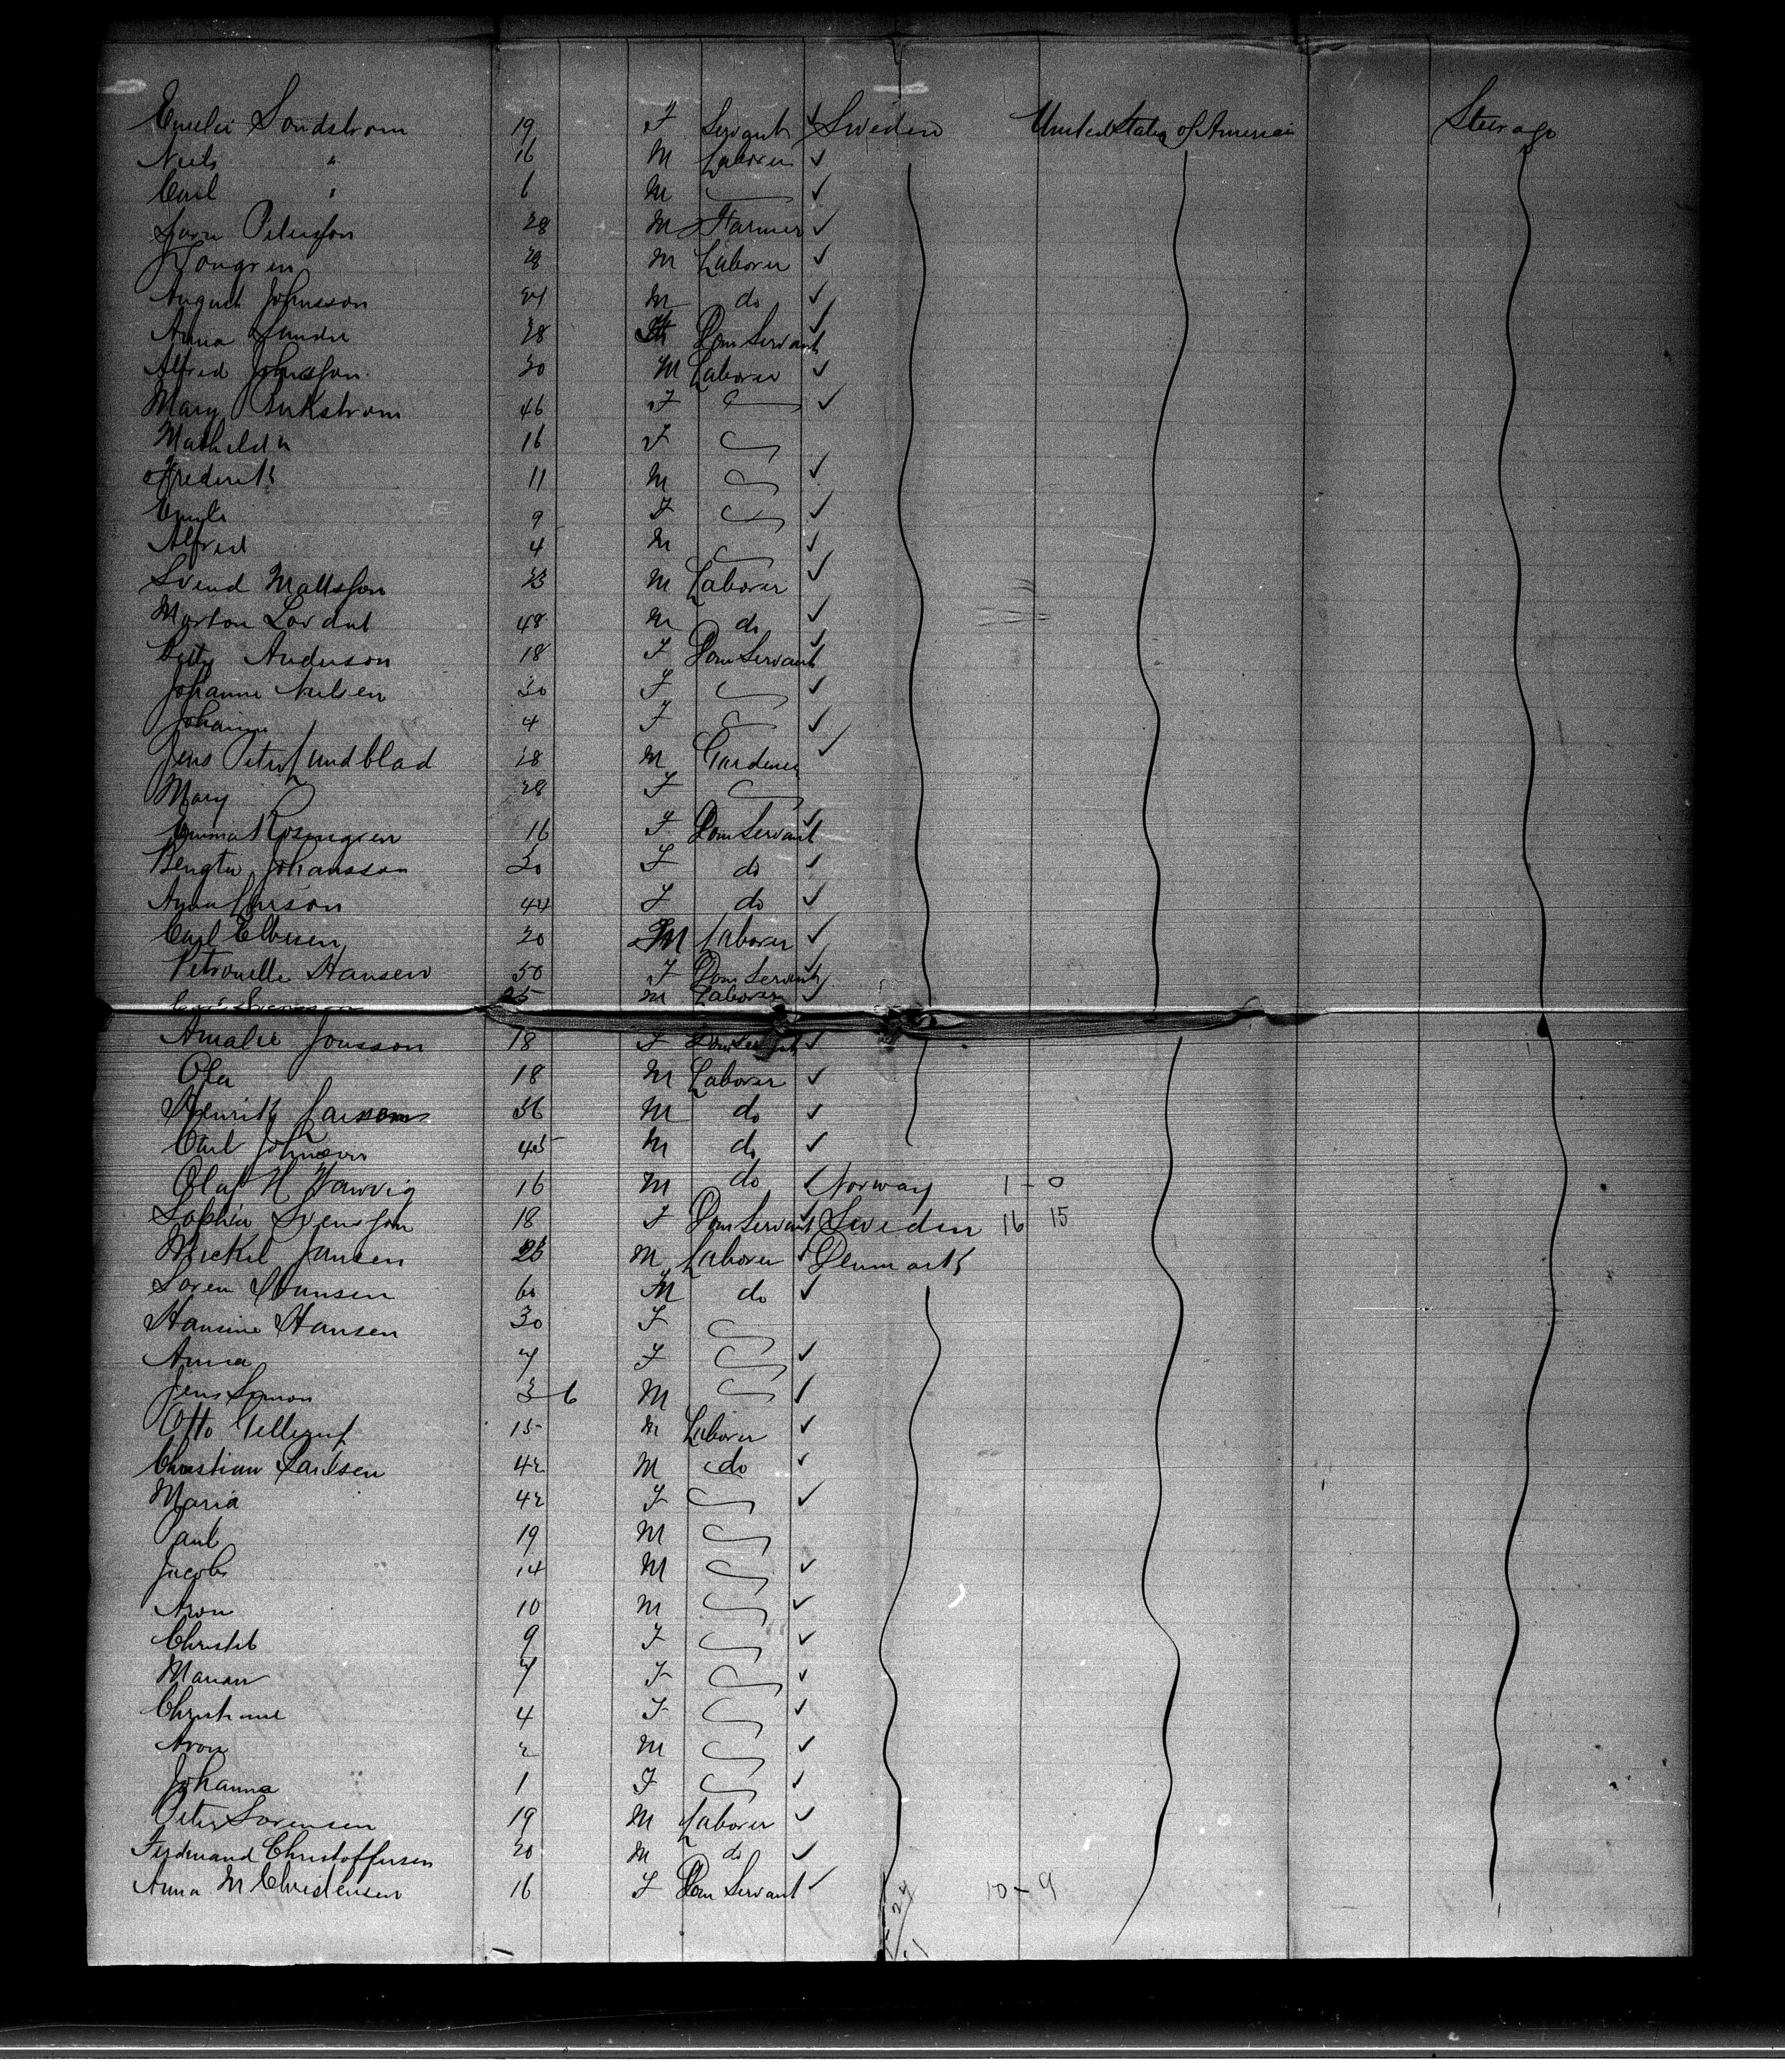 Emelie Sondstrom 19 F Servant ✓ Sweden United States of America Steerage
Niels " 16 M Laborer ✓
Carl " 6 M ✓
Peterson 28 M Farmer ✓
28 M Laborer ✓
August Johnsson 21 M do ✓
Anna 28 F Dom Servant ✓
Alfred Johnsson 20 M Laborer ✓
Mary Burkstrom 46 F ✓
Mathilda 16 F
Frederik 11 M ✓
9 F ✓
Alfred 4 M ✓
Svend Mattsson 23 M Laborer ✓
Morton 48 M do ✓
Betty Anderson 18 F Dom Servant ✓
Johanne Nielsen 30 F ✓
Johanne 4 F ✓
Jens Peter Lundblad 28 M Gardener ✓
Mary 28 F
Emma Rosengren 16 F Dom Servant ✓
Bengta Johansson 30 F do ✓
Anna 44 F do ✓
Carl 20 M Laborer ✓
Petronelle Hansen 50 F Dom Servant ✓
25 M Laborer ✓
Amalie Jonsson 18 F Dom Servant ✓
Ola 18 M Laborer ✓
Henrik Larsson 36 M do ✓
Carl Johnson 45 M do ✓
Olaf H 16 M do ✓ Norway 1 - 0
Sophia Svensson 18 F Dom Servant ✓ Sweden 16 15
Mickel Jansen 26 M Laborer ✓ Denmark
Soren Hansen 60 M do ✓
Hansine Hansen 30 F
Anna 7 F ✓
Jens Simon 3 6 M ✓
Otto Tellerup 15 M Laborer ✓
Christian Paulsen 42 M do ✓
Maria 42 F ✓
Paul 19 M
Jacob 14 M ✓
Aron 10 M ✓
9 F ✓
Marian 7 F ✓
Christiane 4 F ✓
Aron 2 M ✓
Johanna 1 F ✓
Peter Sorensen 19 M Laborer ✓
Ferdinand Christoffersen 20 M do ✓
Anna M Christensen 16 F Dom Servant ✓ 10 - 9